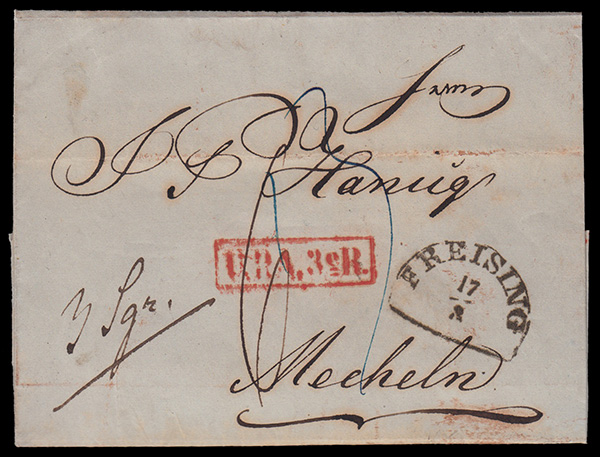 Herrn
J. P. Hanicq
U.P.A.3eR.
FREISING
17
2
3 Sgr.
Mecheln.